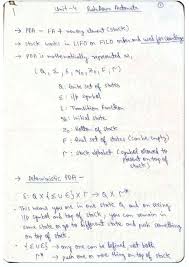 Unit-4 Pushdown Automata
→ PDA = FA + memory element (stack)
→ Stack works in LIFO or FILO order and used for
→ PDA is mathematically represented as,
(Q, Σ, δ, q₀, z₀, F, Γ)
Q: finite set of states
Σ: i/p symbol
δ: Transition function
q₀: initial state
z₀: Bottom of stack
F: final set of states (can be empty)
Γ: stack alphabet (symbol allowed to present on top of stack)
→ Deterministic PDA —
δ: Q X {Σ U ε} X Γ → Q X Γ*
→ This means you are in one state Q and on seeing
i/p symbol and top of stack, you can remain in
same state or go to different state and push something
on top of stack.
→ {Σ U ε} → any one can be defined not both
Γ* → push one or more thing on top of stack